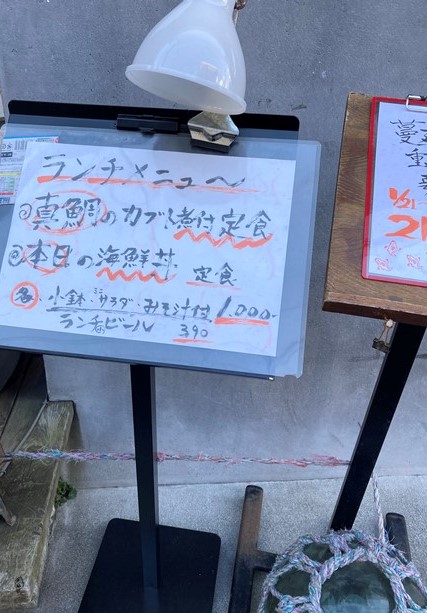 ランチメニュ〜
◎真鯛のカブト煮付定食
◎本日の海鮮丼 定食
各 小鉢・ミニサラダ・みそ汁付 1,000-
ランチ生ビール 390
1/21〜